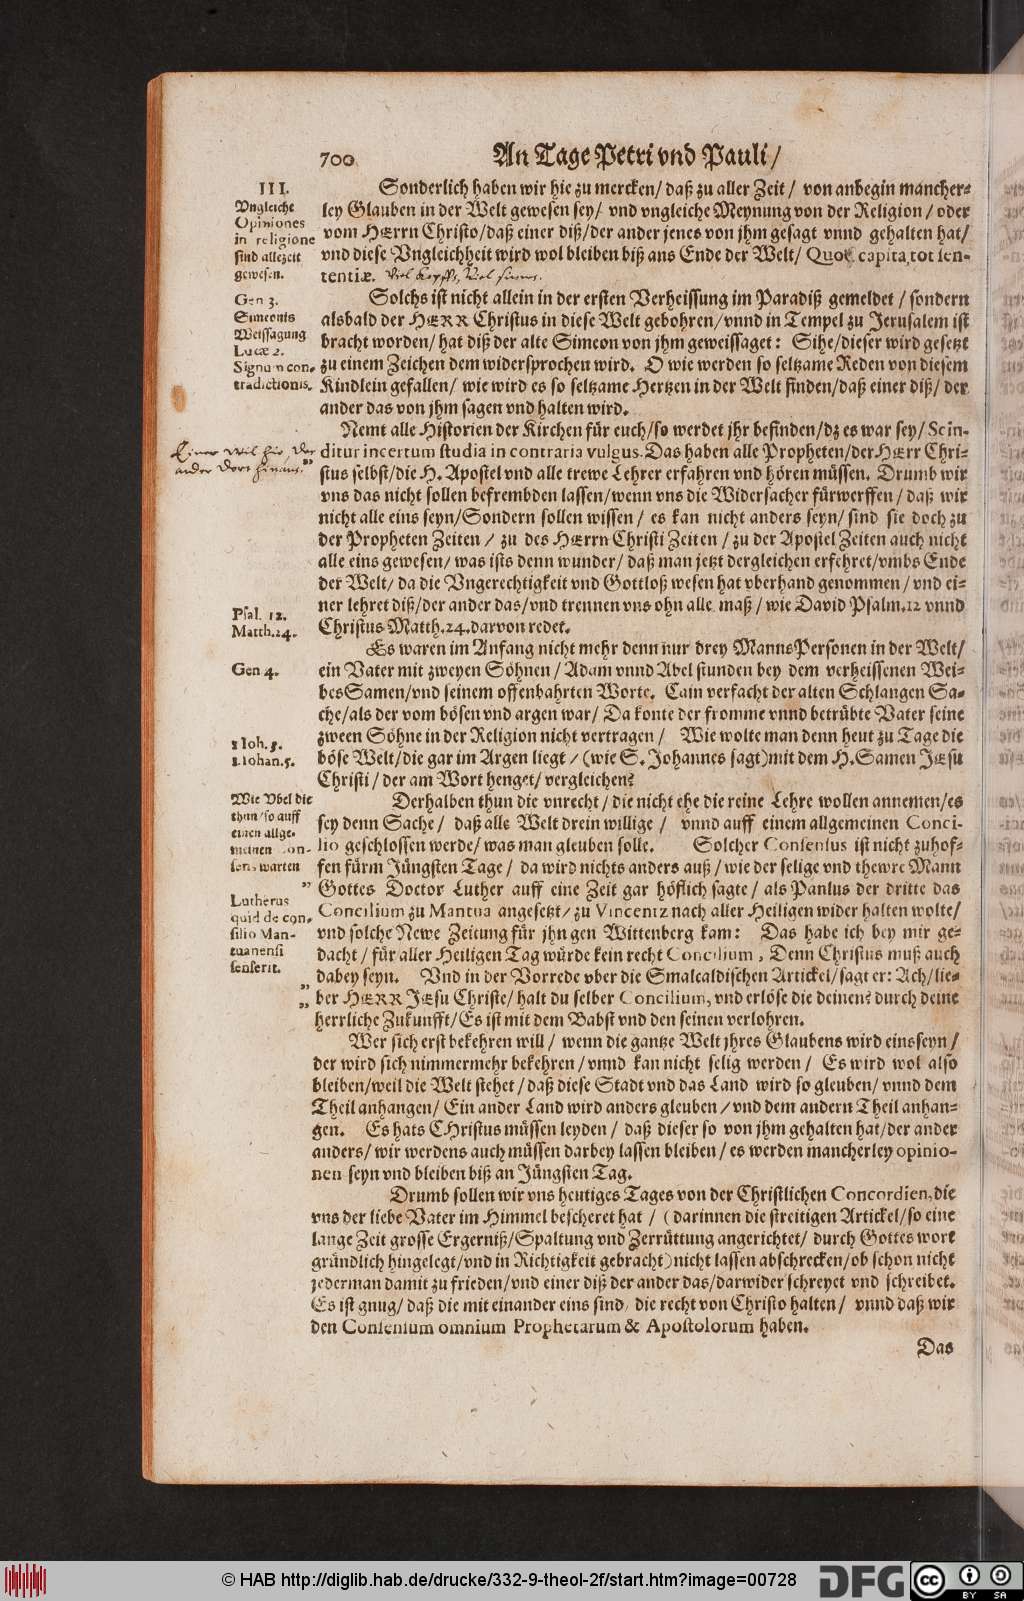 700
An Tage Petri vnd Pauli/
III.
Vngleiche
Opiniones
in religione
sind allezeit
gewesen.
Gen 3.
Simeonis
Weissagung
Lucæ 2.
Signum con-
tradictionis.
Einer wil hie, der
ander dort hinaus.
Psal. 12.
Matth. 24.
Gen 4.
1 Ioh. 3.
1. Iohan. 5.
Wie Vbel die
thun/so auff
einen allge-
meinen Con-
sens warten
Lutherus
quid de con-
silio Man-
tuanensi
senserit.
Sonderlich haben wir hie zu mercken/ daß zu aller Zeit/ von anbegin mancher-
ley Glauben in der Welt gewesen sey/ vnd vngleiche Meynung von der Religion/ oder
vom HErrn Christo/daß einer diß/der ander jenes von jhm gesagt vnnd gehalten hat/
vnd diese Vngleichheit wird wol bleiben biß ans Ende der Welt/ Quot capita, tot sen-
tentiæ. Viel Kopffe, Viel sinne.
Solchs ist nicht allein in der ersten Verheissung im Paradiß gemeldet/ sondern
alsbald der HERR Christus in diese Welt gebohren/vnnd in Tempel zu Jerusalem ist
bracht worden/ hat diß der alte Simeon von jhm geweissaget: Sihe/dieser wird gesetzt
zu einem Zeichen dem widersprochen wird. O wie werden so seltzame Reden von diesem
Kindlein gefallen/ wie wird es so seltzame Hertzen in der Welt finden/daß einer diß/ der
ander das von jhm sagen vnd halten wird.
Nemt alle Historien der Kirchen für euch/so werdet jhr befinden/dz es war sey/ Scin-
ditur incertum studia in contraria vulgus. Das haben alle Propheten/der HErr Chri-
stus selbst/die H. Apostel vnd alle trewe Lehrer erfahren vnd hören müssen. Drumb wir
vns das nicht sollen befrembden lassen/wenn vns die Widersacher fürwerffen/ daß wir
nicht alle eins seyn/Sondern sollen wissen/ es kan nicht anders seyn/ sind sie doch zu
der Propheten Zeiten/ zu des HErrn Christi Zeiten/ zu der Apostel Zeiten auch nicht
alle eins gewesen/ was ists denn wunder/ daß man jetzt dergleichen erfehret/vmbs Ende
der Welt/ da die Vngerechtigkeit vnd Gottloß wesen hat vberhand genommen/ vnd ei-
ner lehret diß/der ander das/vnd trennen vns ohn alle maß/ wie David Psalm.12 vnnd
Christus Matth.24.darvon redet.
Es waren im Anfang nicht mehr denn nur drey MannsPersonen in der Welt/
ein Vater mit zweyen Söhnen/ Adam vnnd Abel stunden bey dem verheissenen Wei-
besSamen/vnd seinem offenbahrten Worte. Cain verfacht der alten Schlangen Sa-
che/als der vom bösen vnd argen war/ Da konte der fromme vnnd betrübte Vater seine
zween Söhne in der Religion nicht vertragen/ Wie wolte man denn heut zu Tage die
böse Welt/die gar im Argen liegt/ (wie S. Johannes sagt)mit dem H. Samen JEsu
Christi/ der am Wort henget/ vergleichen?
Derhalben thun die vnrecht/ die nicht ehe die reine Lehre wollen annemen/es
sey denn Sache/ daß alle Welt drein willige/ vnnd auff einem allgemeinen Conci-
lio geschlossen werde/ was man gleuben solle. Solcher Consensus ist nicht zuhof-
fen fürm Jüngsten Tage/ da wird nichts anders auß/ wie der selige vnd thewre Mann
" Gottes Doctor Luther auff eine Zeit gar höflich sagte/ als Paulus der dritte das
Concilium zu Mantua angesetzt/ zu Vincentz nach aller Heiligen wider halten wolte/
vnd solche Newe Zeitung für jhn gen Wittenberg kam: Das habe ich bey mir ge-
dacht/ für aller Heiligen Tag würde kein recht Concilium, Denn Christus muß auch
dabey seyn. Vnd in der Vorrede vber die Smalcaldischen Artickel/sagt er: Ach/lie-
" ber HERR JEsu Christe/ halt du selber Concilium, vnd erlöse die deinen? durch deine
" herrliche Zukunfft/Es ist mit dem Babst vnd den seinen verlohren.
Wer sich erst bekehren will/ wenn die gantze Welt jhres Glaubens wird eins seyn/
der wird sich nimmermehr bekehren/ vnnd kan nicht selig werden/ Es wird wol also
bleiben/weil die Welt stehet/ daß diese Stadt vnd das Land wird so gleuben/ vnnd dem
Theil anhangen/ Ein ander Land wird anders gleuben/ vnd dem andern Theil anhan-
gen. Es hats CHristus müssen leyden/ daß dieser so von jhm gehalten hat/der ander
anders/ wir werdens auch müssen darbey lassen bleiben/ es werden mancherley opinio-
nen seyn vnd bleiben biß an Jüngsten Tag.
Drumb sollen wir vns heutiges Tages von der Christlichen Concordien, die
vns der liebe Vater im Himmel bescheret hat/ (darinnen die streitigen Artickel/so eine
lange Zeit grosse Ergerniß/Spaltung vnd Zerrüttung angerichtet/ durch Gottes wort
gründlich hingelegt/vnd in Richtigkeit gebracht)nicht lassen abschrecken/ob schon nicht
jederman damit zu frieden/vnd einer diß der ander das/darwider schreyet vnd schreibet.
Es ist gnug/ daß die mit einander eins sind, die recht von Christo halten/ vnnd daß wir
den Consensum omnium Prophetarum & Apostolorum haben.
Das
© HAB http://diglib.hab.de/drucke/332-9-theol-2f/start.htm?image=00728
DFG
cc BY SA